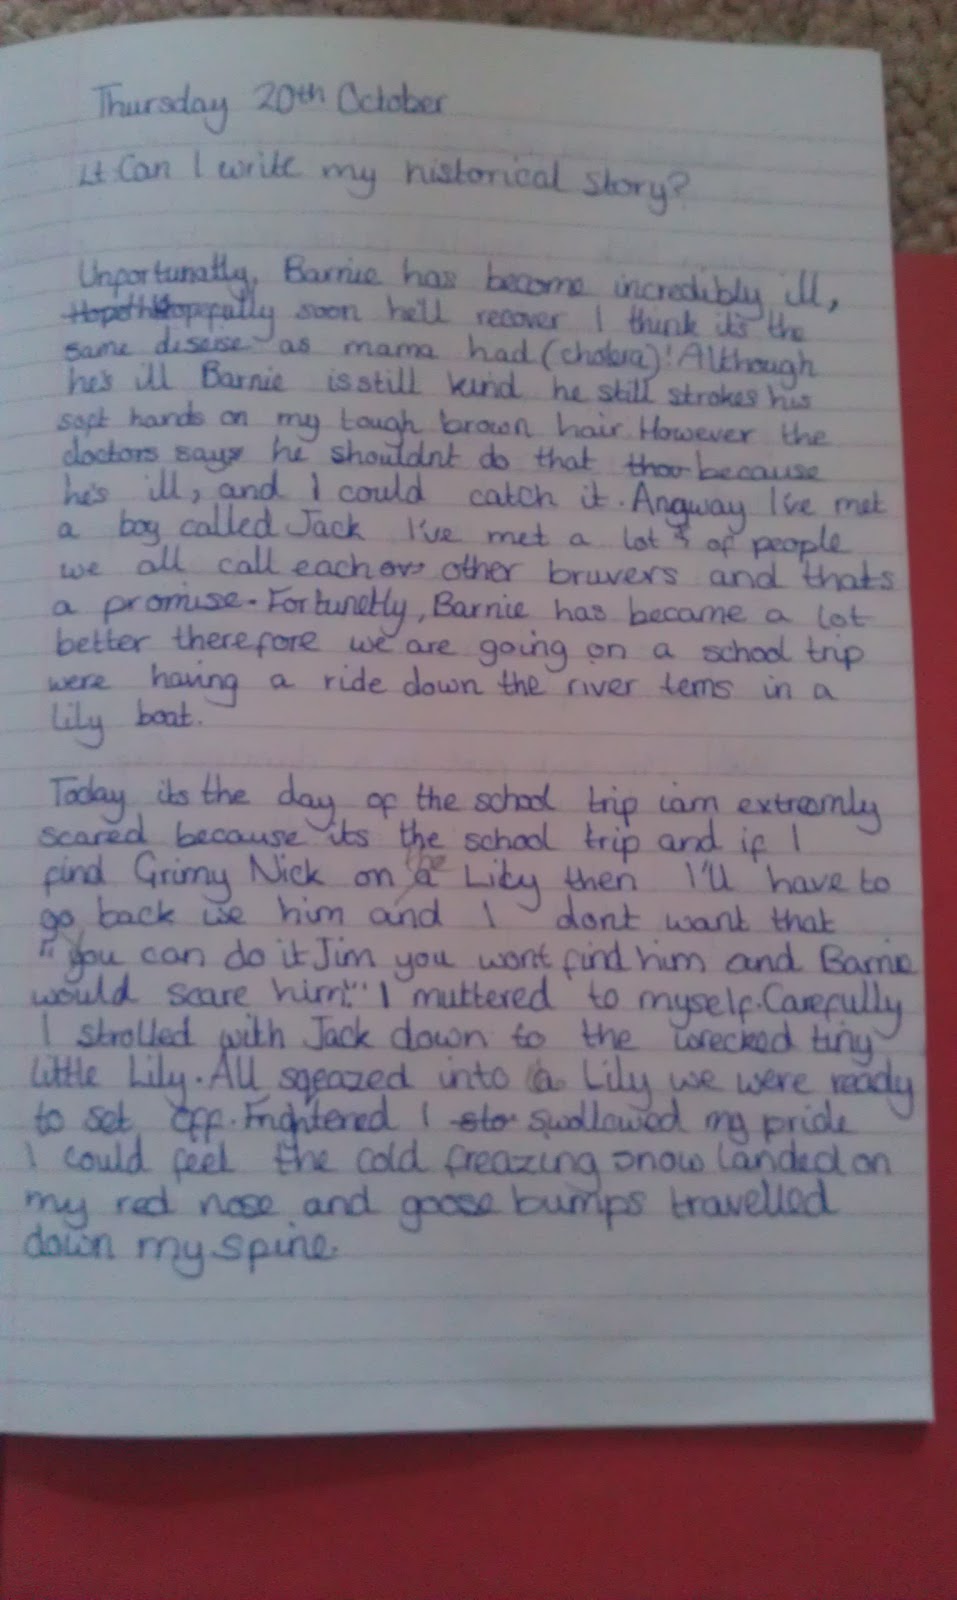 Thursday 20th October
Lt: Can I write my historical story?
Unfortunatly, Barnie has become incredibly ill,
Hopefully soon he'll recover I think it's the
same diseise as mama had (cholera)! Although
he's ill Barnie is still kind he still strokes his
soft hands on my tough brown hair. However the
doctors says he shouldnt do that thou because
he's ill, and I could catch it. Angway I've met
a boy called Jack I've met a lot of people
we all call each other bruvers and thats
a promise. Fortunetly, Barnie has became a lot
better therefore we are going on a school trip
were having a ride down the river tems in a
Lily boat.
Today its the day of the school trip iam extreamly
scared because its the school trip and if I
find Grimy Nick on the Lily then I'll have to
go back we him and I dont want that
"you can do it Jim you wont find him and Barnie
would scare him!" I muttered to myself. Carefully
I strolled with Jack down to the wrecked tiny
little Lily. All sqeazed into a Lily we were ready
to set off. Frightered I sto swollowed my pride
I could feel the cold freazing snow landed on
my red nose and goose bumps travelled
down my spine.